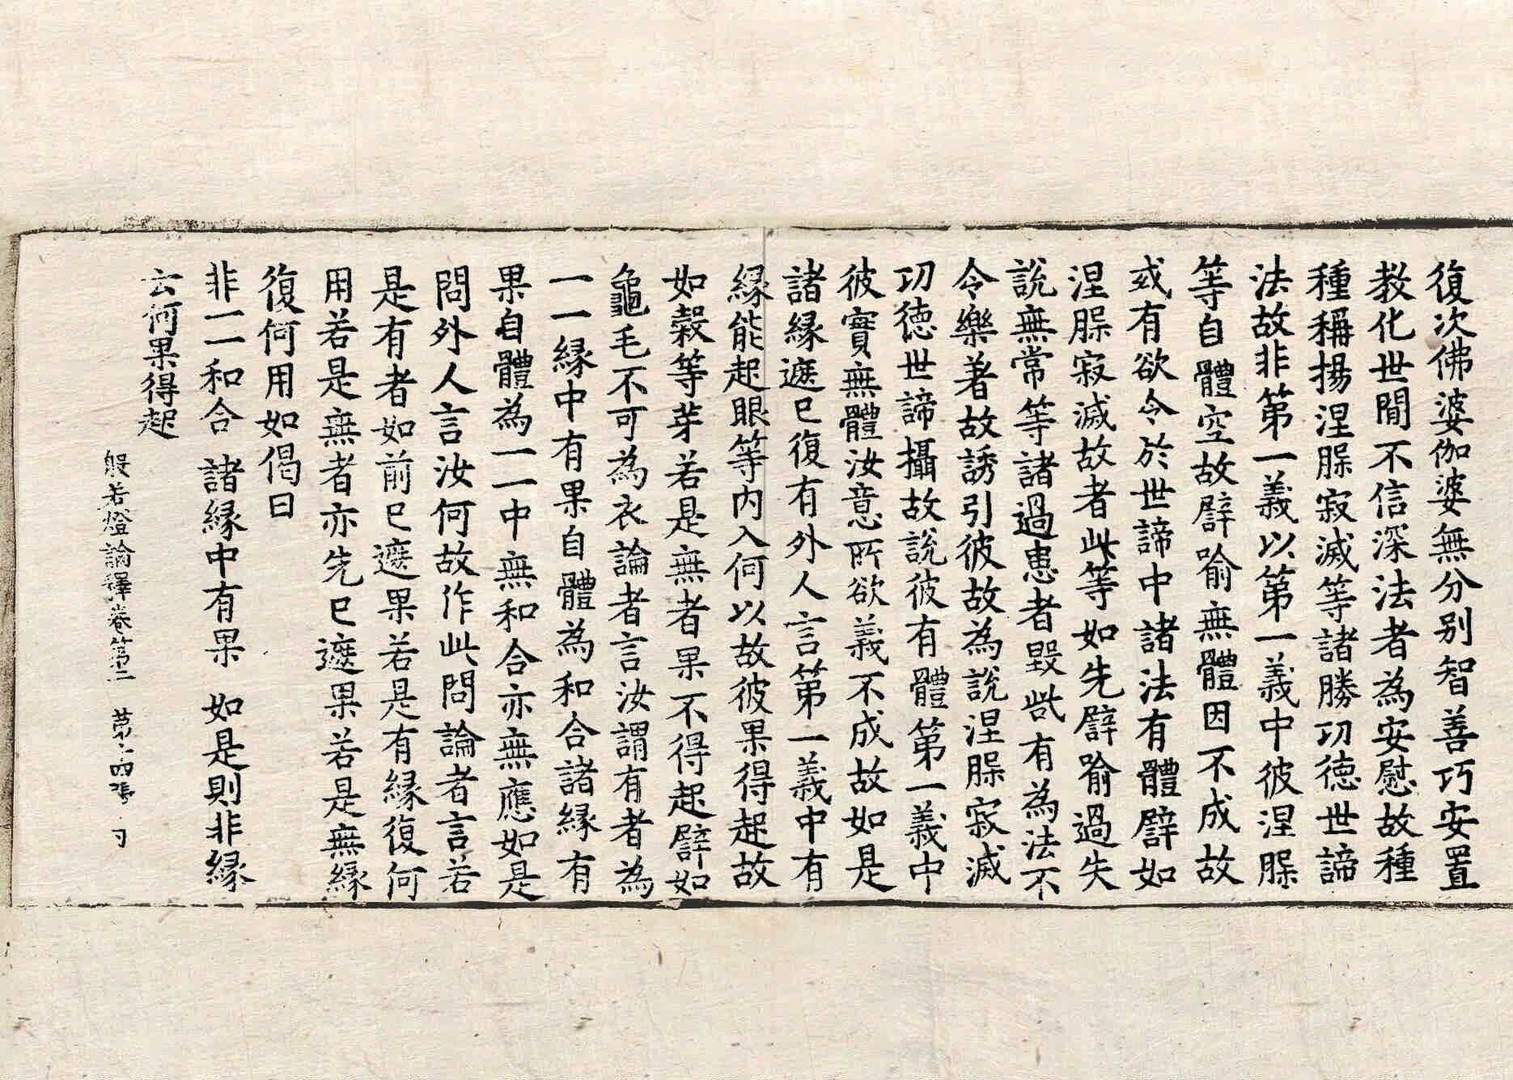 復次佛婆伽婆無分別智善巧安置
教化世間不信深法者為安慰故種
種稱揚涅脲寂滅等諸勝功德世諦
法故非第一義以第一義中彼涅脲
等自體空故譬喻無體因不成故
或有欲令於世諦中諸法有體譬如
涅脲寂滅故者此等如先譬喻過失
說無常等諸過患者毀呰有為法不
令樂著故誘引彼故為說涅脲寂滅
功德世諦攝故說彼有體第一義中
彼實無體汝意所欲義不成故如是
諸緣遮已復有外人言第一義中有
緣能起眼等內入何以故彼果得起故
如穀等芽若是無者果不得起譬如
龜毛不可為衣論者言汝謂有者為
一一緣中有果自體為和合諸緣有
果自體為一一中無和合亦無應如是
問外人言汝何故作此問論者言若
是有者如前已遮果若是有緣復何
用若是無者亦先已遮果若是無緣
復何用如偈曰
非一一和合 諸緣中有果 如是則非緣
云何果得起
般若燈論釋卷第二 第十四張 寸